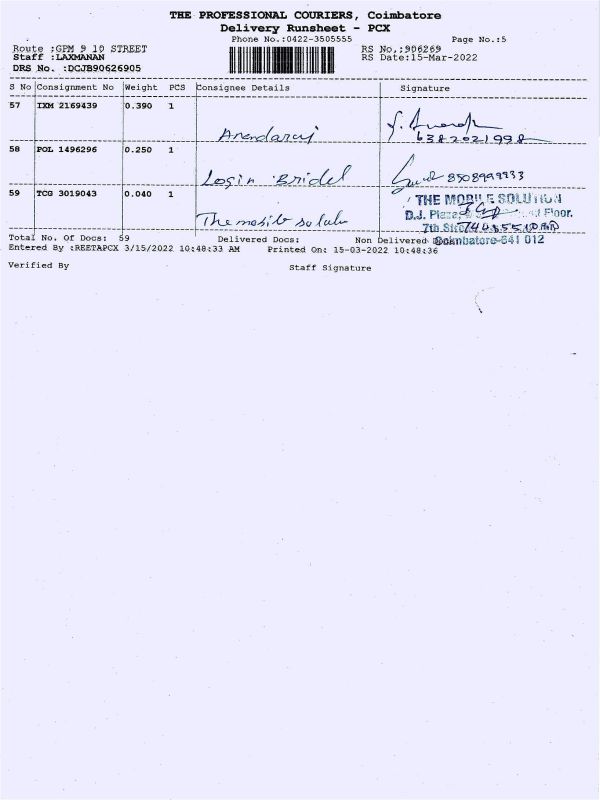 THE PROFESSIONAL COURIERS, Coimbatore
Delivery Runsheet - PCX
Phone No.:0422-3505555 Page No.:5
Route :GPM 9 10 STREET RS No.:906269
Staff :LAXMANAN RS Date:15-Mar-2022
DRS No. :DCJB90626905
S No Consignment No Weight PCS Consignee Details Signature
57 IXM 2169439 0.390 1
Anandaraj 6382021998
58 POL 1496296 0.250 1
Login Bridel 8508999933
59 TCG 3019043 0.040 1 THE MOBILE SOLUTION
D.J. Plaza Floor.
The mobile
7th
Total No. Of Docs: 59 Delivered Docs: Non Delivered Coimbatore-641 012
Entered By :REETAPCX 3/15/2022 10:48:33 AM Printed On: 15-03-2022 10:48:36
Verified By Staff Signature